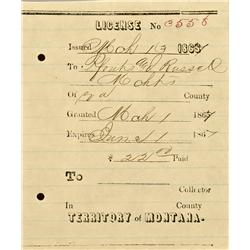 LICENSE No 3556
Issued Mch 19 1867
To & Russell
Of County
Granted Mch 1 1867
Expires June 1 1867
$ 22 50 Paid
To
Collector
In County
TERRITORY OF MONTANA.